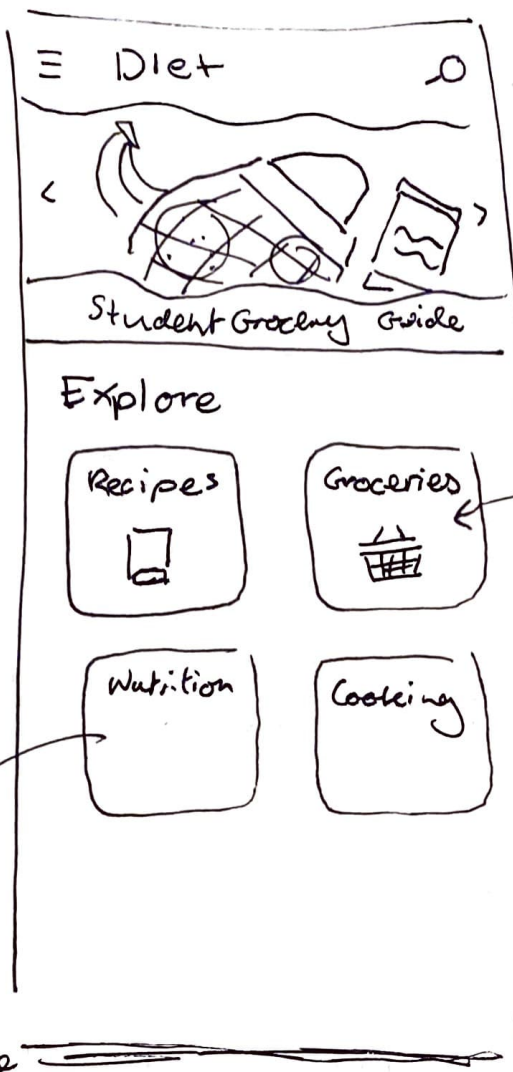 Diet
Student Grocery Guide
Explore
Recipes
Groceries
Nutrition
Cooking